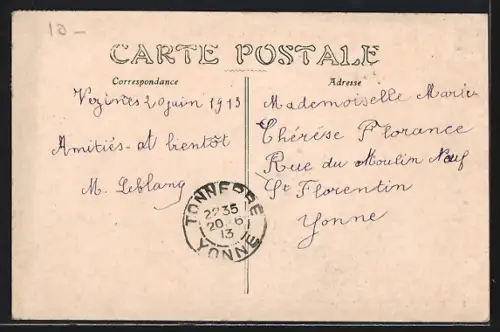 10 -
CARTE POSTALE
Correspondance
Adresse
Vezinnes 20 juin 1913
Amitiés - et bientôt
M. Leblang
Mademoiselle Marie
Thérèse Florance
Rue du Moulin Neuf
St Florentin
Yonne
TONNERRE
22 35
20 - 6
13
YONNE